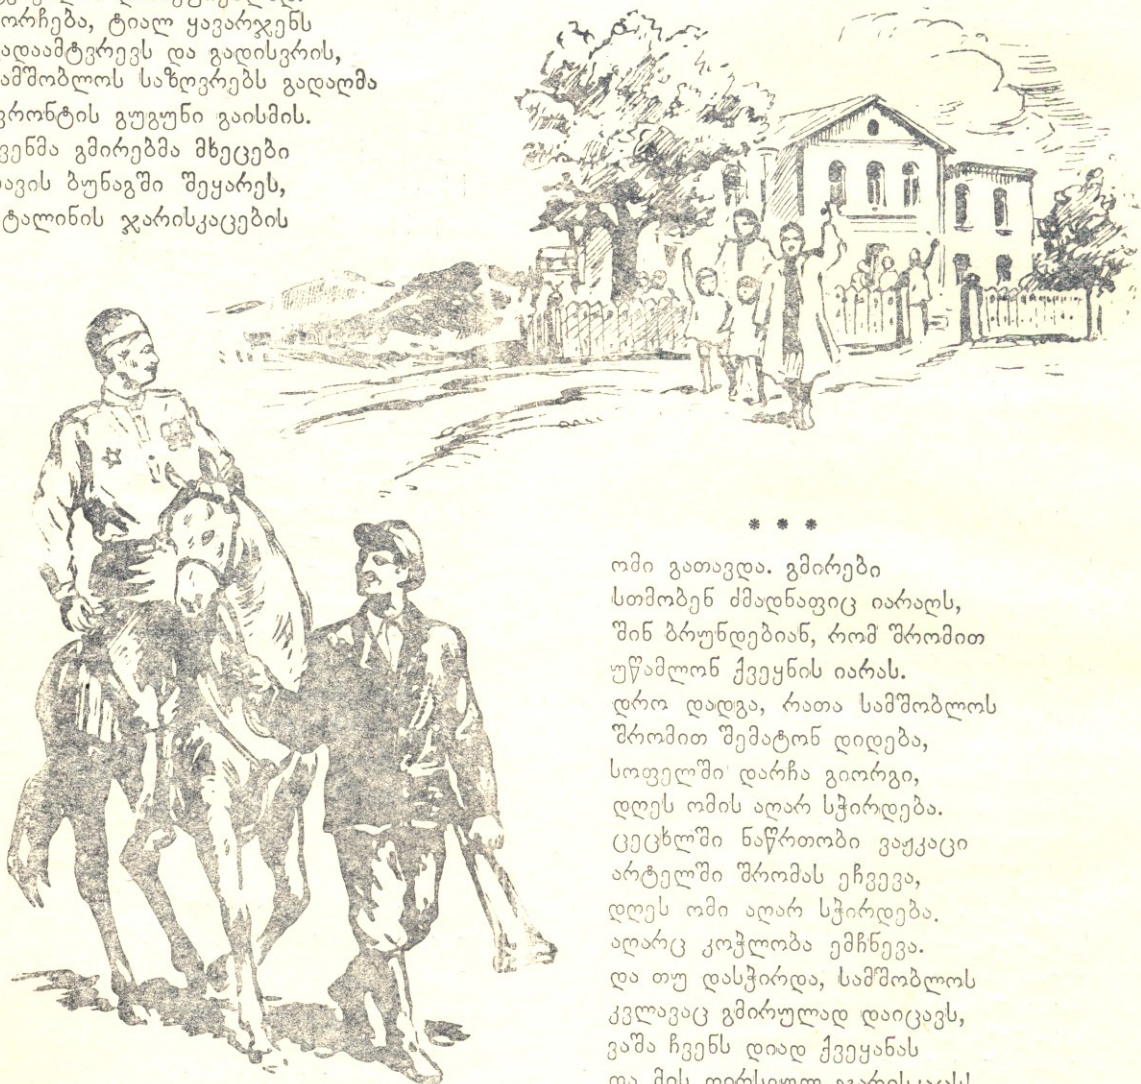 ორჩება, ტიალ ყავარჯენს
ადაამტვრევს და გადისვრის,
ამშობლოს საზღვრებს გადაღმა
რონტის გუგუნი გაისმის.
ვენმა გმირებმა მხეცები
ავის ბუნაგში შეყარეს,
ტალინის ჯარისკაცების
* * *
ომი გათავდა. გმირები
სთმობენ ძმადნაფიც იარაღს,
შინ ბრუნდებიან, რომ შრომით
უწამლონ ქვეყნის იარას.
დრო დადგა, რათა სამშობლოს
შრომით შემატონ დიდება,
სოფელში დარჩა გიორგი,
დღეს ომის აღარ სჭირდება.
ცეცხლში ნაწრთობი ვაჟკაცი
არტელში შრომას ეჩვევა,
დღეს ომი აღარ სჭირდება.
აღარც კოჭლობა ემჩნევა.
და თუ დასჭირდა, სამშობლოს
კვლავაც გმირულად დაიცავს,
ვაშა ჩვენს დიად ქვეყანას
და მის ღირსეულ ჯარისკაცს!